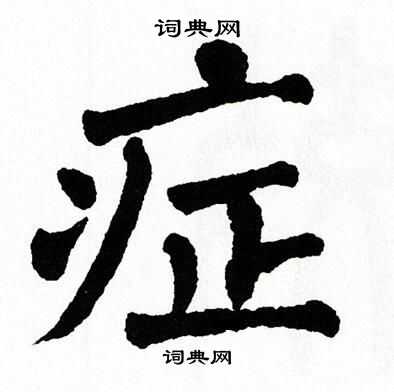 词典网
症
词典网